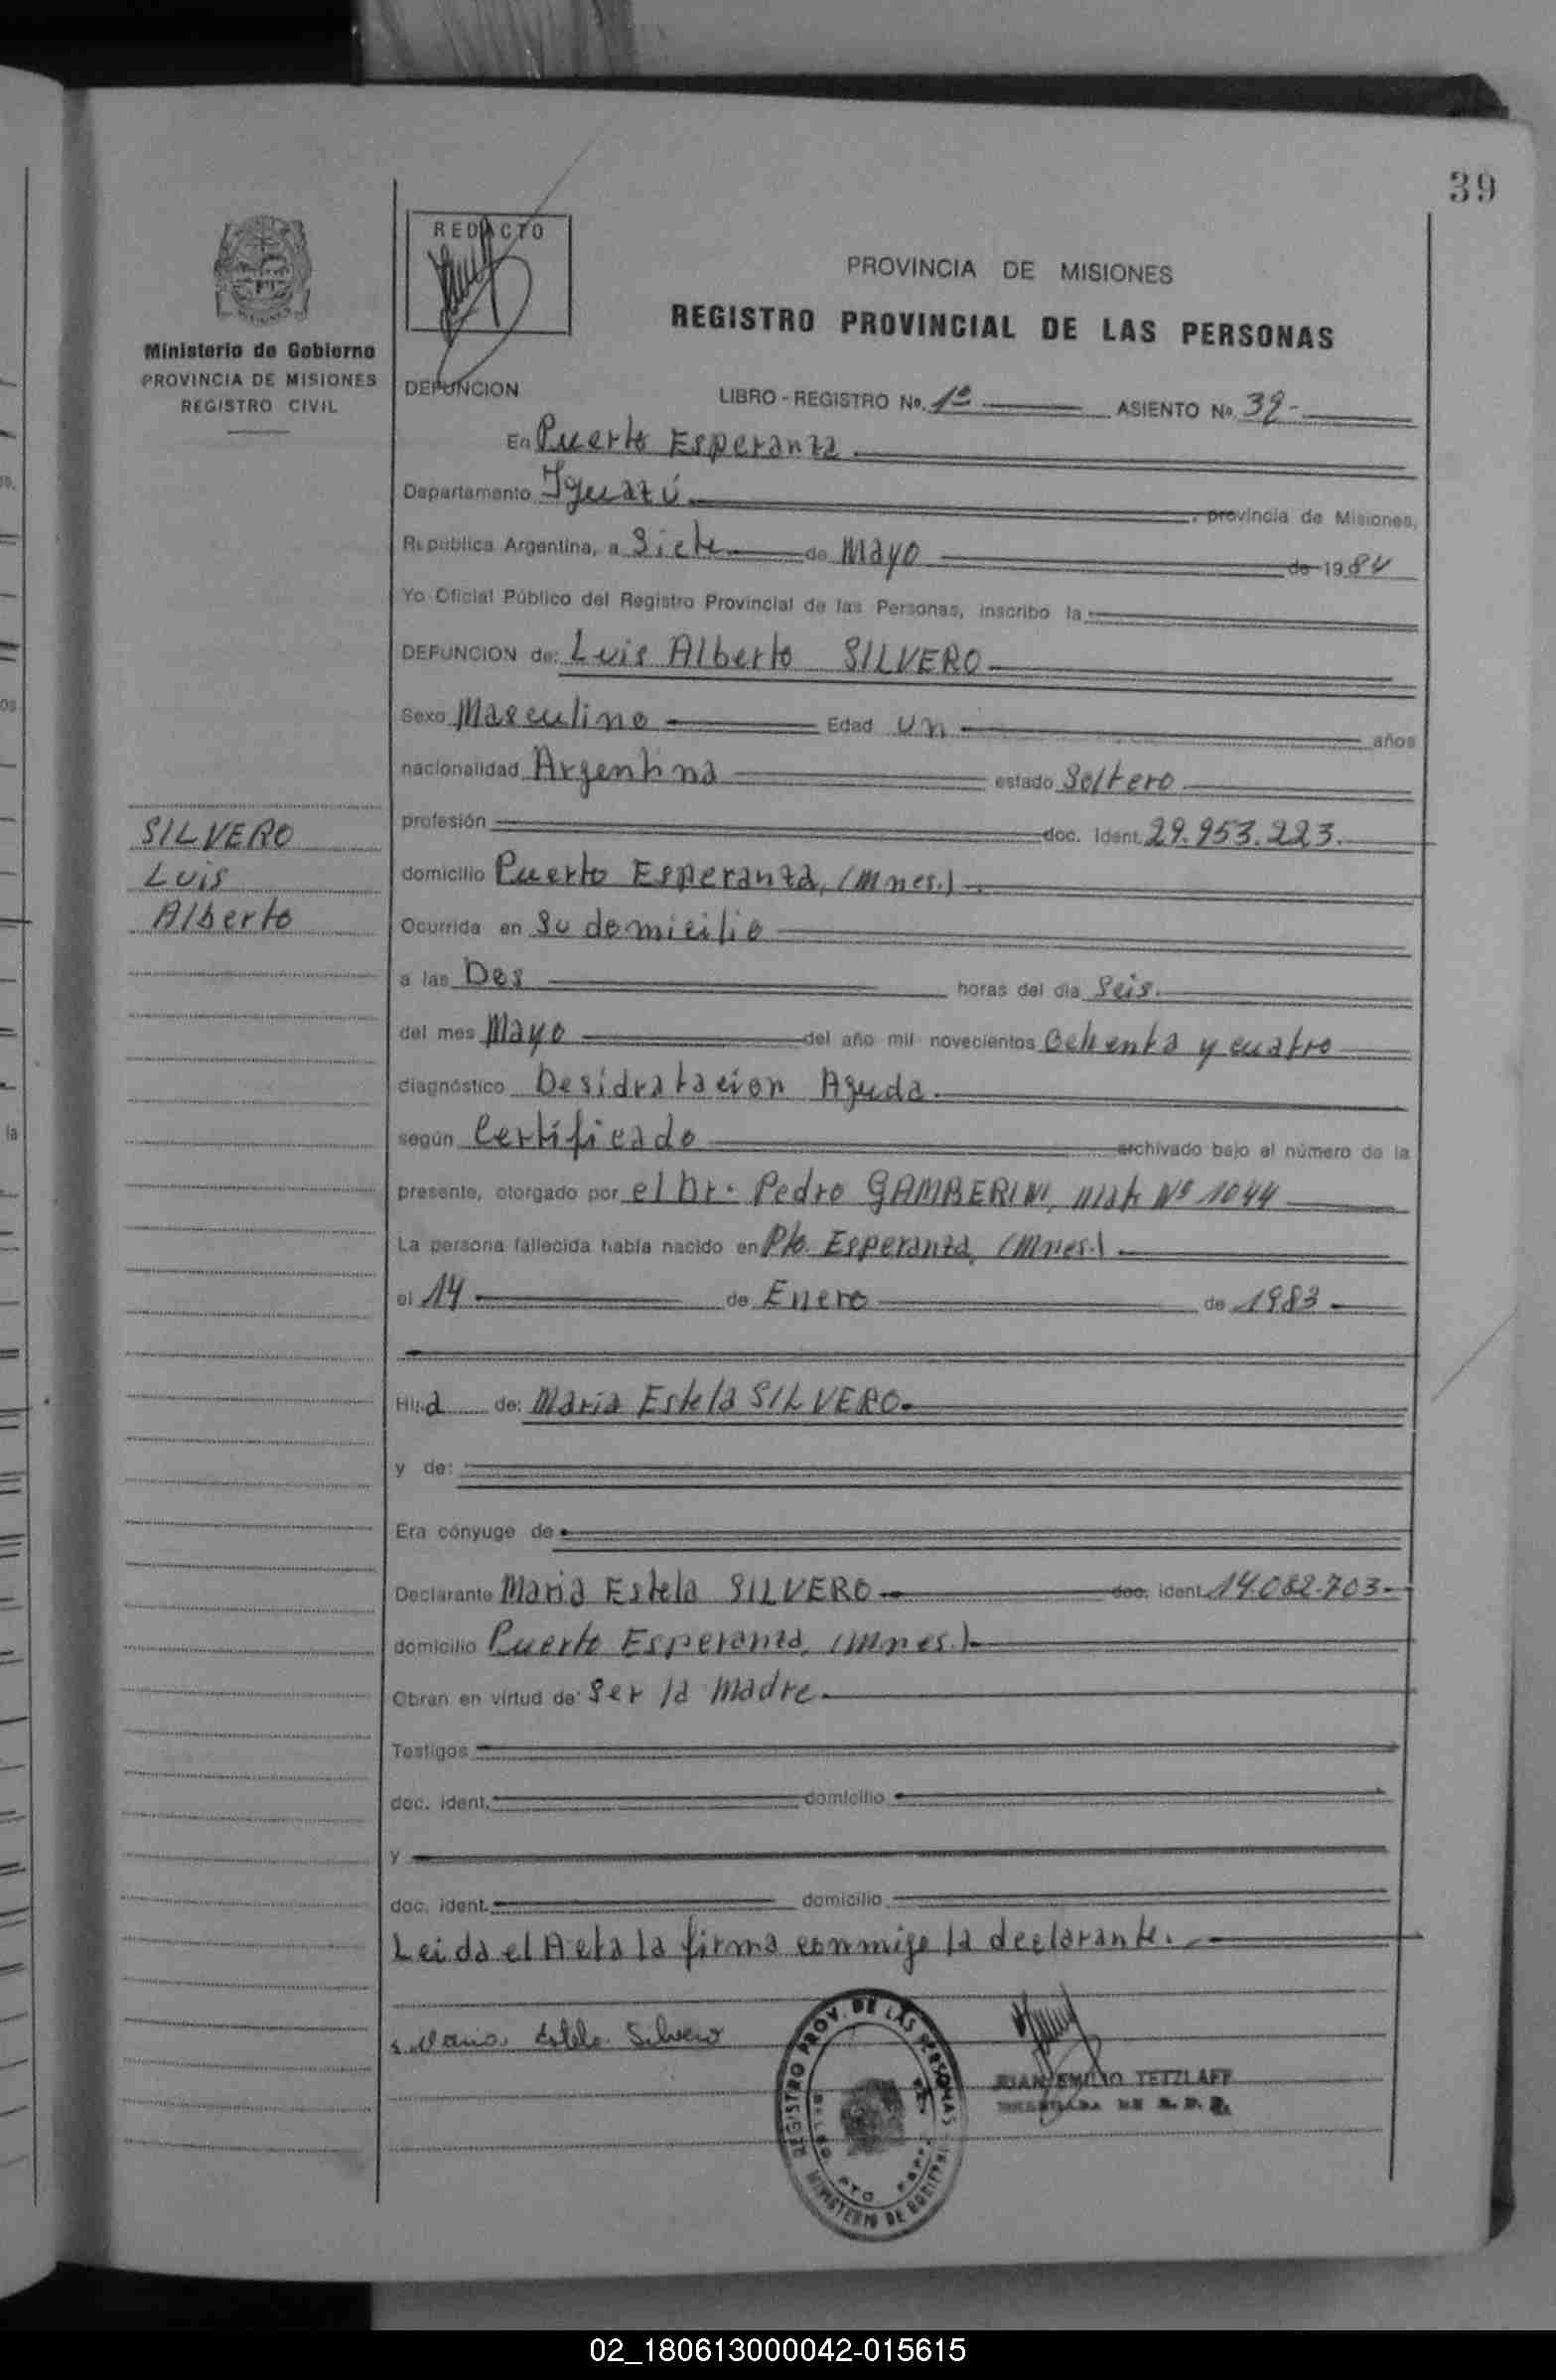 39
REDACTO
PROVINCIA DE MISIONES
REGISTRO PROVINCIAL DE LAS PERSONAS
Ministerio de Gobierno
PROVINCIA DE MISIONES
REGISTRO CIVIL
DEFUNCION
LIBRO - REGISTRO No. 1º ASIENTO No. 39-
En Puerto Esperanza
Departamento Iguazú, provincia de Misiones,
República Argentina, a Siete de Mayo de 1984
Yo Oficial Público del Registro Provincial de las Personas, inscribo la
DEFUNCION de: Luis Alberto SILVERO
Sexo Masculino Edad un años
nacionalidad Argentina estado Soltero
profesión doc. Ident. 29.953.223.
SILVERO
Luis
Alberto
domicilio Puerto Esperanza, (Mnes.)
Ocurrida en Su domicilio
a las Dos horas del día Seis.
del mes Mayo del año mil novecientos Ochenta y cuatro
diagnóstico Desidratacion Aguda.
según Certificado archivado bajo el número de la
presente, otorgado por el Dr. Pedro GAMBERINI, Mat Nº 1044
La persona fallecida había nacido en Pto. Esperanza, (Mnes.)
el 14 de Enero de 1983
Hija de: Maria Estela SILVERO.
y de:
Era cónyuge de
Declarante Maria Estela SILVERO doc. ident. 14.082.703-
domicilio Puerto Esperanza, (Mnes.)
Obran en virtud de Ser la Madre
Testigos
doc. ident. domicilio
y
doc. ident. domicilio
Leida el Acta la firma conmigo la declarante.
Maria Estela Silvero
REGISTRO PROV. DE LAS PERSONAS
MINISTERIO DE GOBIERNO
JUAN EMILIO TETZLAFF
02_180613000042-015615